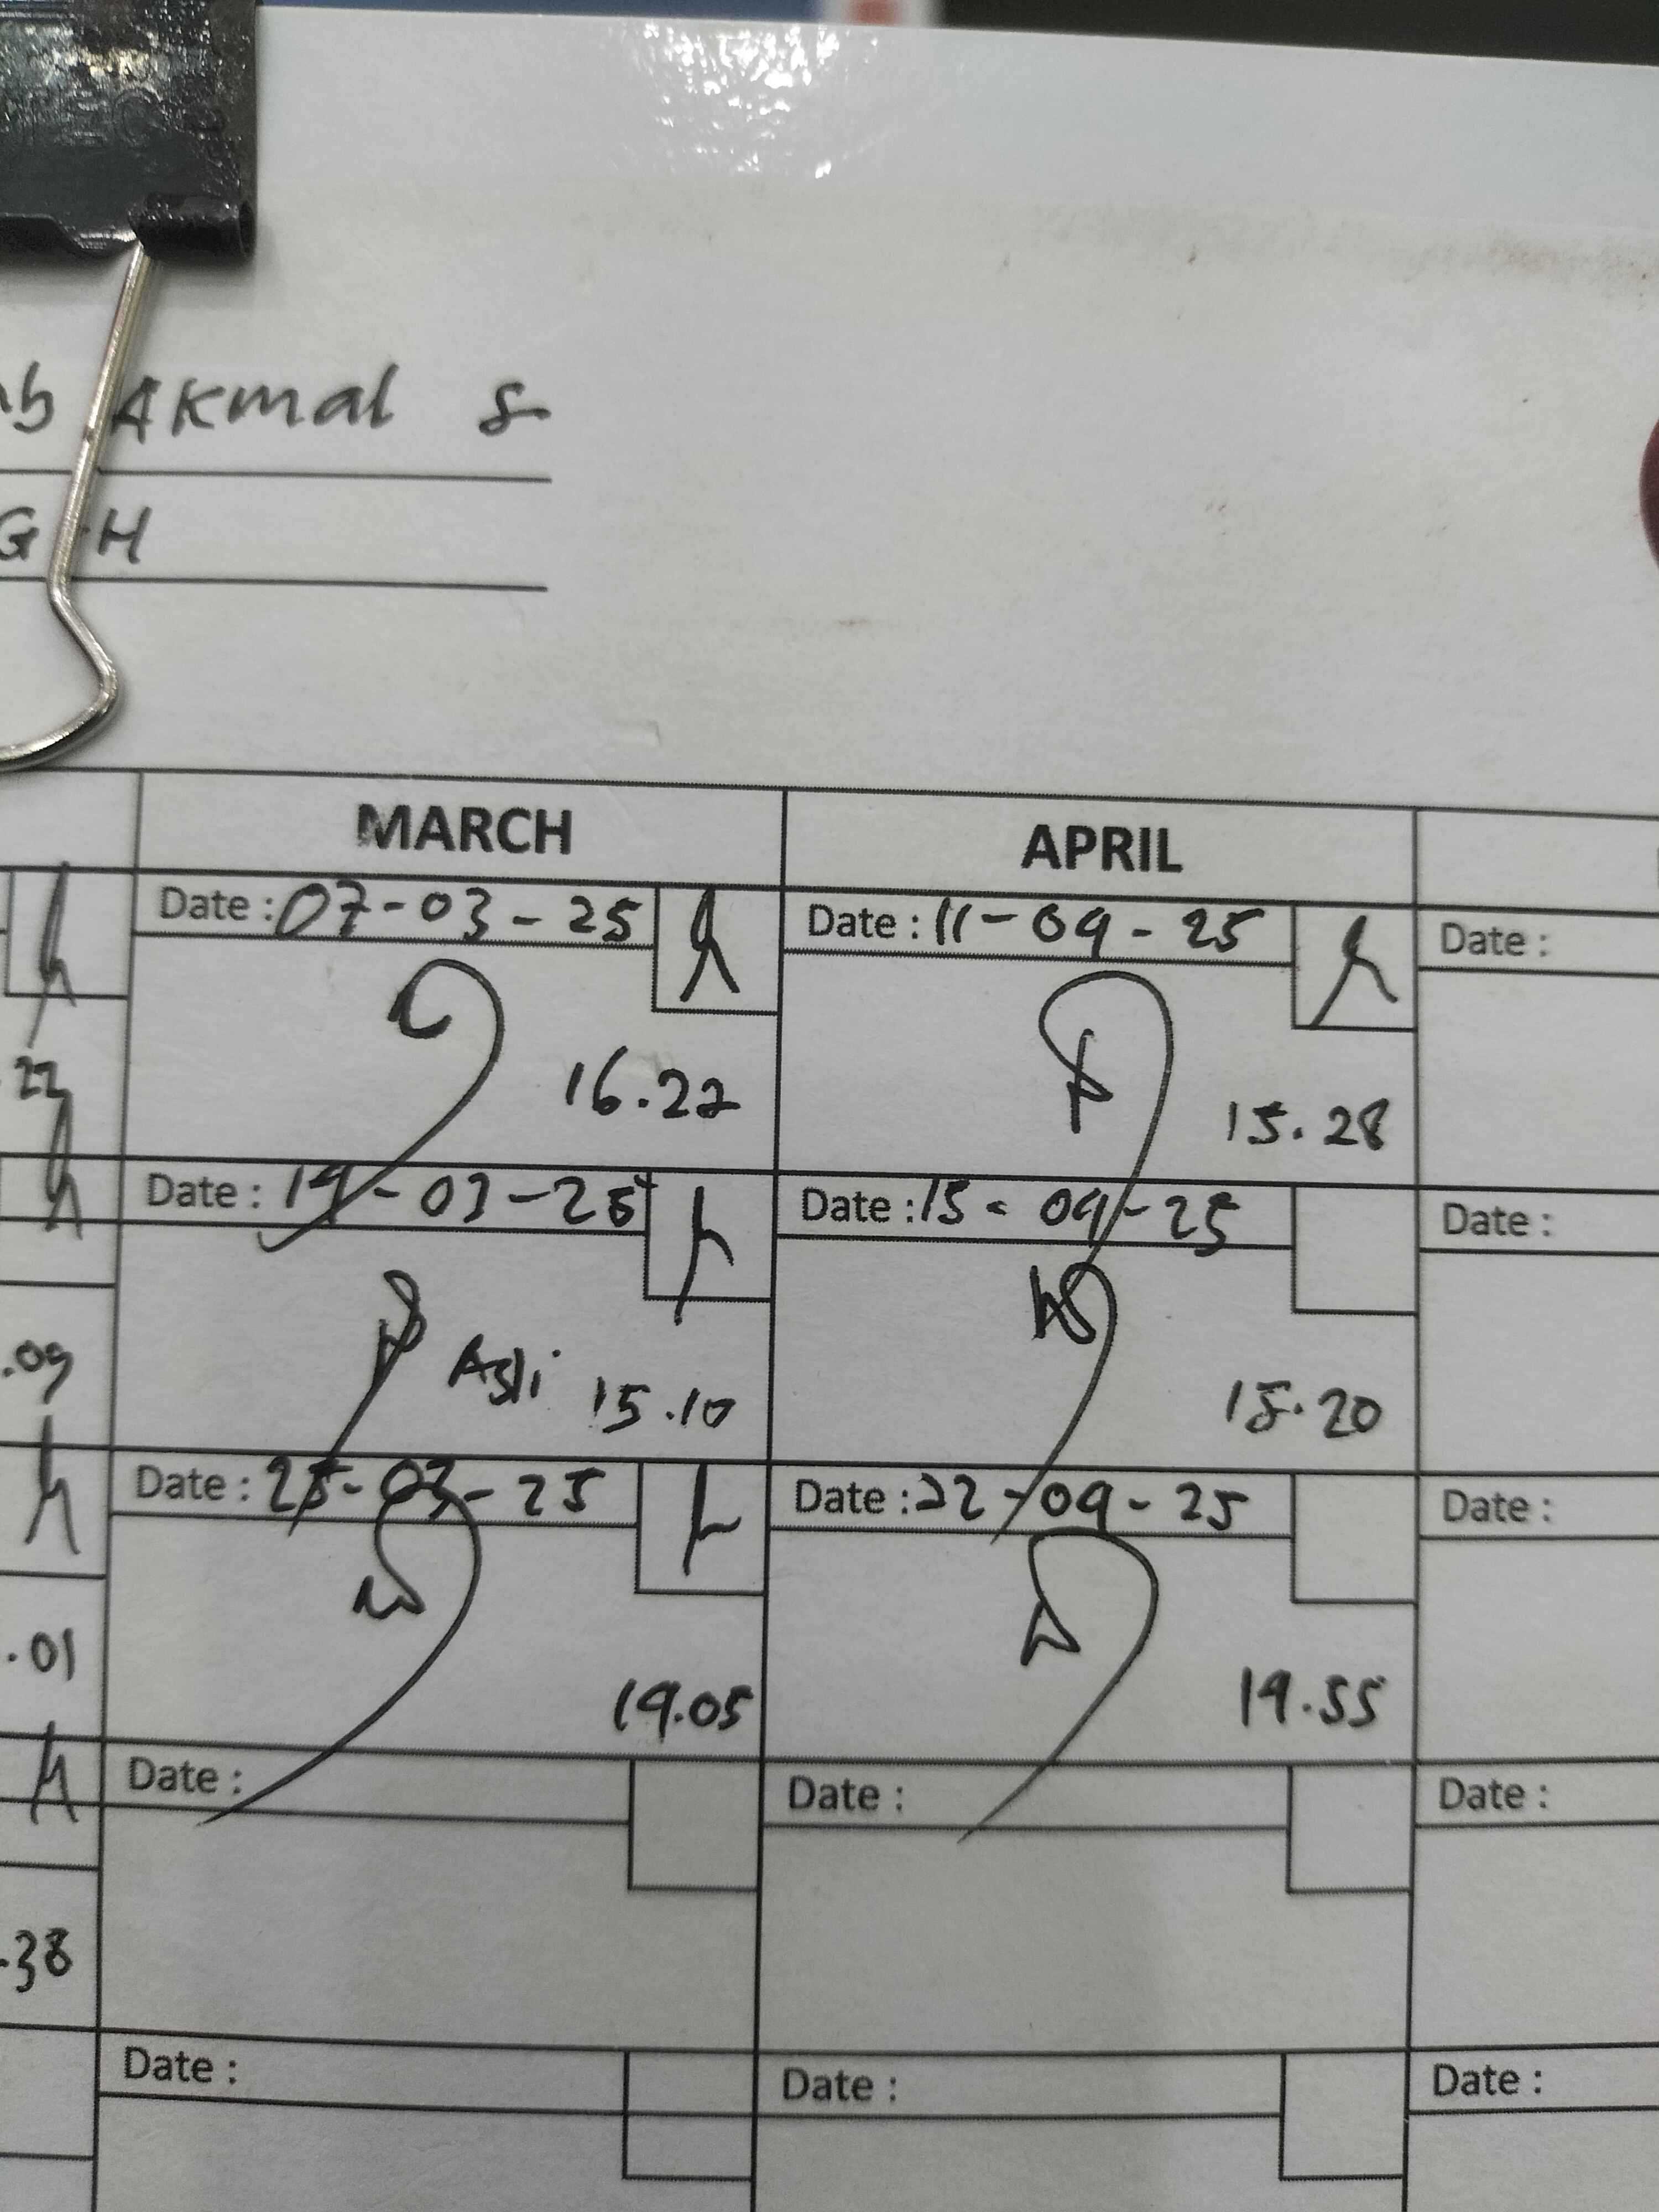 Akmal S
G-H
MARCH
APRIL
Date : 07-03-25
Date : 11-04-25
Date :
16.22
15.28
22
Date : 14-03-25
Date : 15-04-25
Date :
Asli 15.10
15.20
.09
Date : 25-03-25
Date : 22-04-25
Date :
14.05
14.55
.01
Date :
Date :
Date :
.38
Date :
Date :
Date :